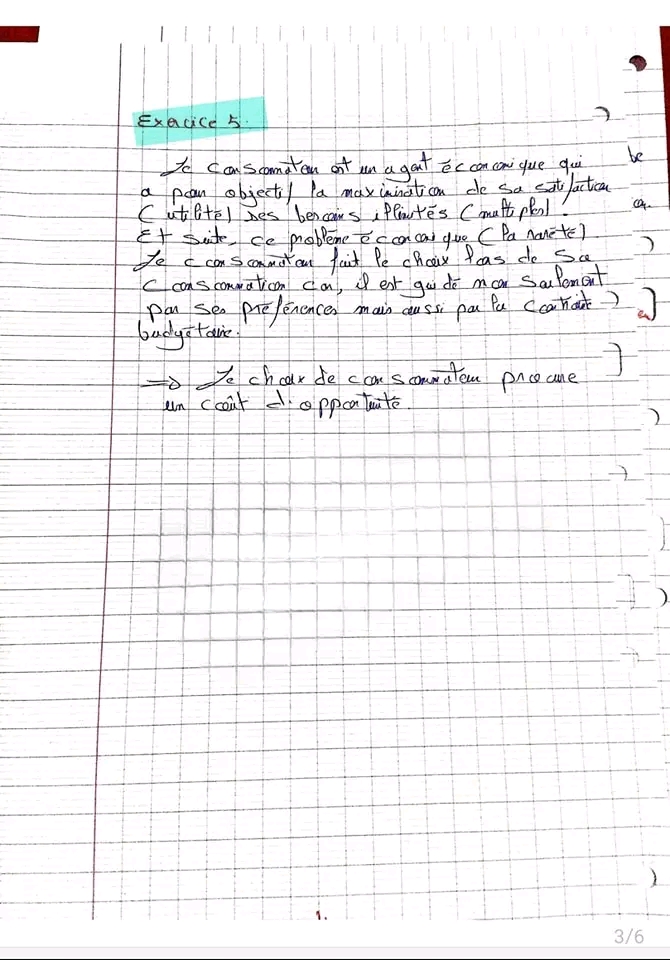 Exercice 5.
Le consommateur est un agent économique qui
a pour objectif la maximisation de sa satisfaction
(utilité) des besoins illimités (multiples).
Et suite, ce problème économique (la rareté)
Le consommateur fait le choix lors de sa
consommation car, il est guidé non seulement
par ses préférences mais aussi par la contrainte
budgétaire.
=> Le choix de consommateur procure
un coût d'opportunité.
be
car
en
1.
3/6